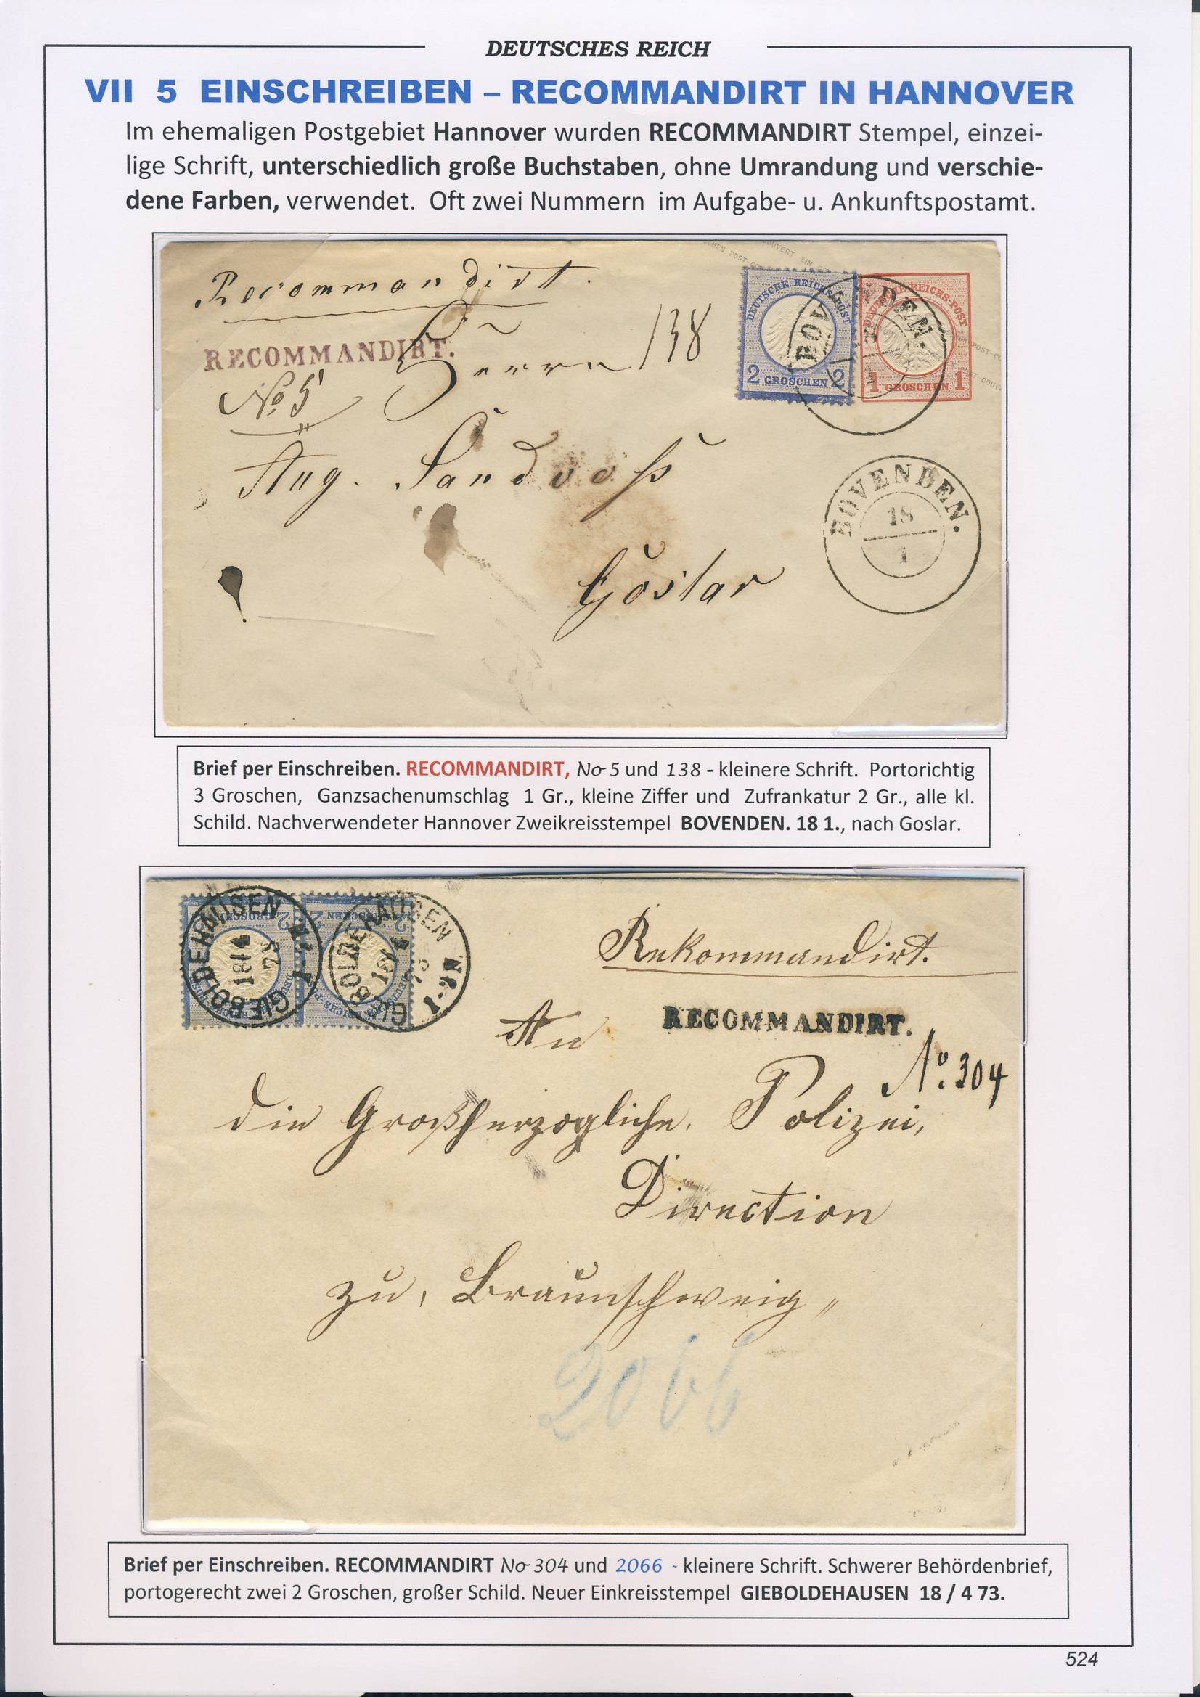 DEUTSCHES REICH
VII 5 EINSCHREIBEN – RECOMMANDIRT IN HANNOVER
Im ehemaligen Postgebiet Hannover wurden RECOMMANDIRT Stempel, einzei-
lige Schrift, unterschiedlich große Buchstaben, ohne Umrandung und verschie-
dene Farben, verwendet. Oft zwei Nummern im Aufgabe- u. Ankunftspostamt.
Recommandirt.
RECOMMANDIRT.
Herrn 138
No 5
Aug. Sandvoß
Goslar
DEUTSCHE REICHS-POST
2 GROSCHEN 2
REICHS-POST
1 GROSCHEN 1
BOVENDEN.
18
1
Brief per Einschreiben. RECOMMANDIRT, No 5 und 138 - kleinere Schrift. Portorichtig
3 Groschen, Ganzsachenumschlag 1 Gr., kleine Ziffer und Zufrankatur 2 Gr., alle kl.
Schild. Nachverwendeter Hannover Zweikreisstempel BOVENDEN. 18 1., nach Goslar.
GIEBOLDEHAUSEN
18/4
73
GIEBOLDEHAUSEN
18/4
73
Rekommandirt.
RECOMMANDIRT.
No. 304
An
die Großherzogliche Polizei,
Direction
zu, Braunschweig„
2066
Brief per Einschreiben. RECOMMANDIRT No 304 und 2066 - kleinere Schrift. Schwerer Behördenbrief,
portogerecht zwei 2 Groschen, großer Schild. Neuer Einkreisstempel GIEBOLDEHAUSEN 18 / 4 73.
524